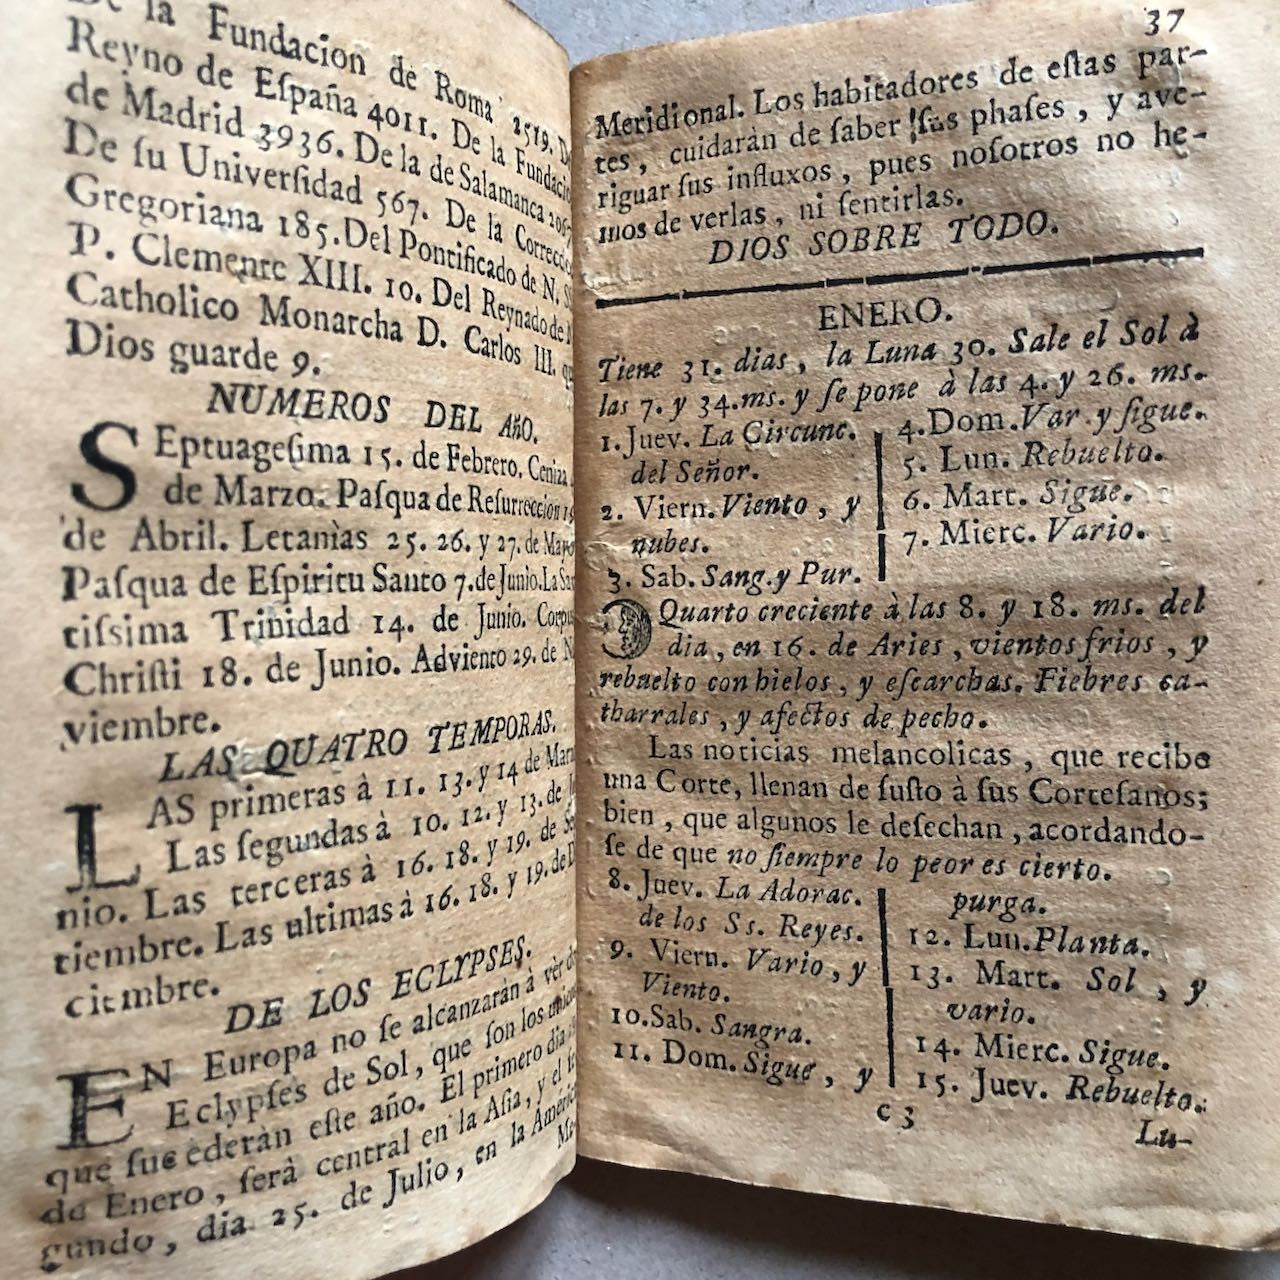 De la Fundacion de Roma 2519. De
Reyno de España 4011. De la Fundacio
de Madrid 3936. De la de Salamanca 206
De ſu Univerſidad 567. De la Correccio
Gregoriana 185. Del Pontificado de N. S
P. Clemente XIII. 10. Del Reynado de
Catholico Monarcha D. Carlos III. qu
Dios guarde 9.
NUMEROS DEL AñO.
SEptuageſima 15. de Febrero. Ceniza
de Marzo. Paſqua de Reſurreccion
de Abril. Letanìas 25. 26. y 27. de Mayo
Paſqua de Eſpiritu Santo 7. de Junio. La San
tiſsima Trinidad 14. de Junio. Corpus
Chriſti 18. de Junio. Adviento 29. de N
viembre.
LAS QUATRO TEMPORAS.
LAS primeras à 11. 13. y 14 de Marz
Las ſegundas à 10. 12. y 13. de Ju
nio. Las terceras à 16. 18. y 19. de Sep
tiembre. Las ultimas à 16. 18. y 19. de D
ciembre.
DE LOS ECLYPSES.
EN Europa no ſe alcanzaràn à vèr do
Eclypſes de Sol, que ſon los unicos
que ſucederàn eſte año. El primero dia
de Enero, ſerà central en la Aſia, y el ſe
gundo, dia 25. de Julio, en la América
Me-
37
Meridional. Los habitadores de eſtas par-
tes, cuidaràn de ſaber ſus phaſes, y ave-
riguar ſus influxos, pues noſotros no he-
mos de verlas, ni ſentirlas.
DIOS SOBRE TODO.
ENERO.
Tiene 31. dias, la Luna 30. Sale el Sol à
las 7. y 34. ms. y ſe pone à las 4. y 26. ms.
1. Juev. La Circunc.
del Señor.
2. Viern. Viento, y
nubes.
3. Sab. Sang. y Pur.
4. Dom. Var. y ſigue.
5. Lun. Rebuelto.
6. Mart. Sigue.
7. Mierc. Vario.
Quarto creciente à las 8. y 18. ms. del
dia, en 16. de Aries, vientos frios, y
rebuelto con hielos, y eſcarchas. Fiebres ca-
tharrales, y afectos de pecho.
Las noticias melancolicas, que recibe
una Corte, llenan de ſuſto à ſus Corteſanos;
bien, que algunos le deſechan, acordando-
ſe de que no ſiempre lo peor es cierto.
8. Juev. La Adorac.
de los Ss. Reyes.
9. Viern. Vario, y
Viento.
10. Sab. Sangra.
11. Dom. Sigue, y
purga.
12. Lun. Planta.
13. Mart. Sol, y
vario.
14. Mierc. Sigue.
15. Juev. Rebuelto.
C 3
Lu-